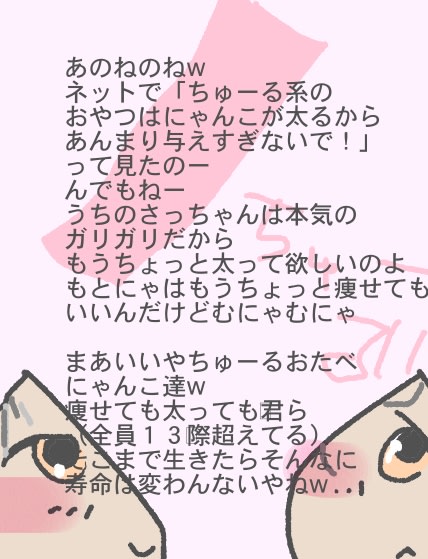 あのねのねw
ネットで「ちゅーる系の
おやつはにゃんこが太るから
あんまり与えすぎないで！」
って見たのー
んでもねー
うちのさっちゃんは本気の
ガリガリだから
もうちょっと太って欲しいのよ
もとにゃはもうちょっと痩せても
いいんだけどむにゃむにゃ
まあいいやちゅーるおたべ
にゃんこ達w
痩せても太っても君ら
（全員１３際超えてる）
ここまで生きたらそんなに
寿命は変わんないやねw．．